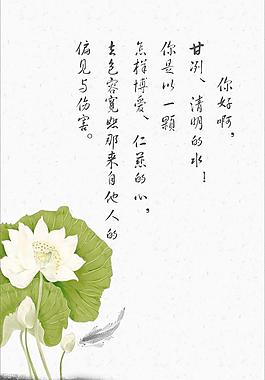 你好啊，
甘冽、清明的水！
你是以一颗
怎样博爱、仁慈的心，
去包容宽恕那来自他人的
偏见与伤害。